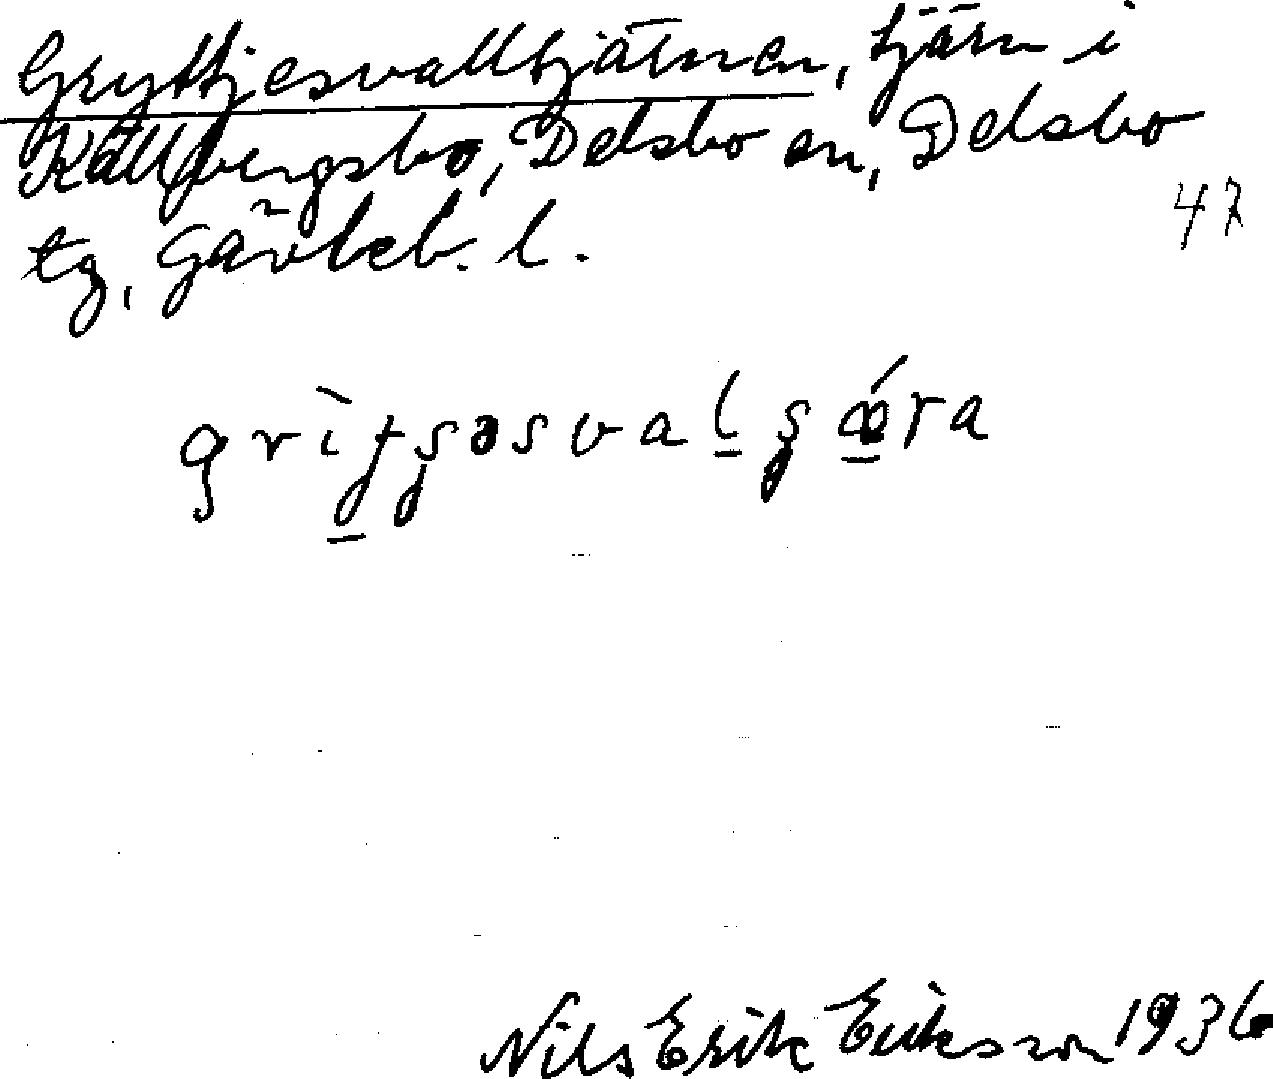 Gryttjesvalltjärnen, tjärn i
Källbergsbo, Delsbo sn, Delsbo
47
tg, Gävleb. l.
Nils Erik Eriksson 1936